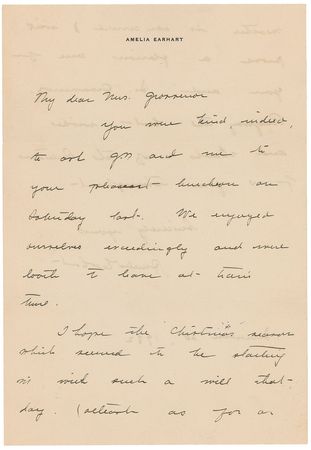 AMELIA EARHART
My dear Mrs. Grosvenor
You were kind, indeed,
to ask GP and me to
your pleasant luncheon on
Saturday last. We enjoyed
ourselves exceedingly and were
loath to leave at train
time.
I hope the Christmas season
which seemed to be starting
in with such a will that
day. (at least as far as